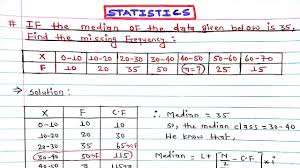 STATISTICS
# IF the median of the data given below is 35,
Find the missing Frequency:
X 0-10 10-20 20-30 30-40 40-50 50-60 60-70
F 10 20 35 50 q=? 25 15
⇒ solution:
X F C.F
0-10 10 10
10-20 20 30
20-30 35 65→C.F
30-40 50→F 115
∴ Median = 35
So, the median class = 30-40
We know that,
Median = L+ [N/2 - C.F